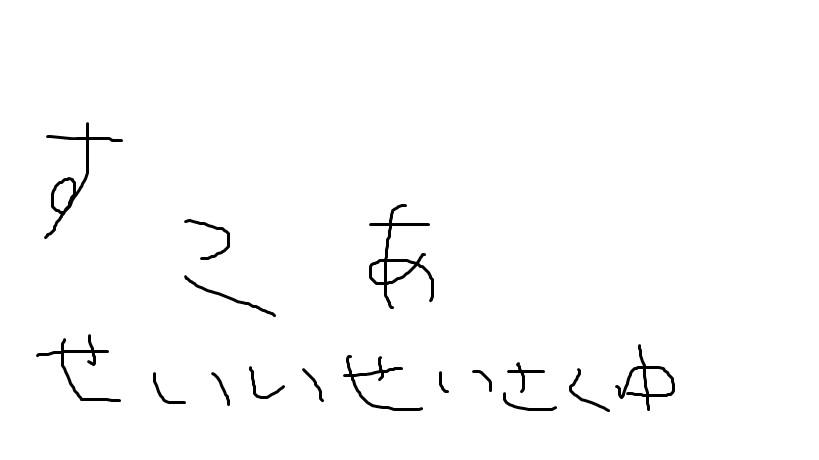 すこあ
せいいせいさく中